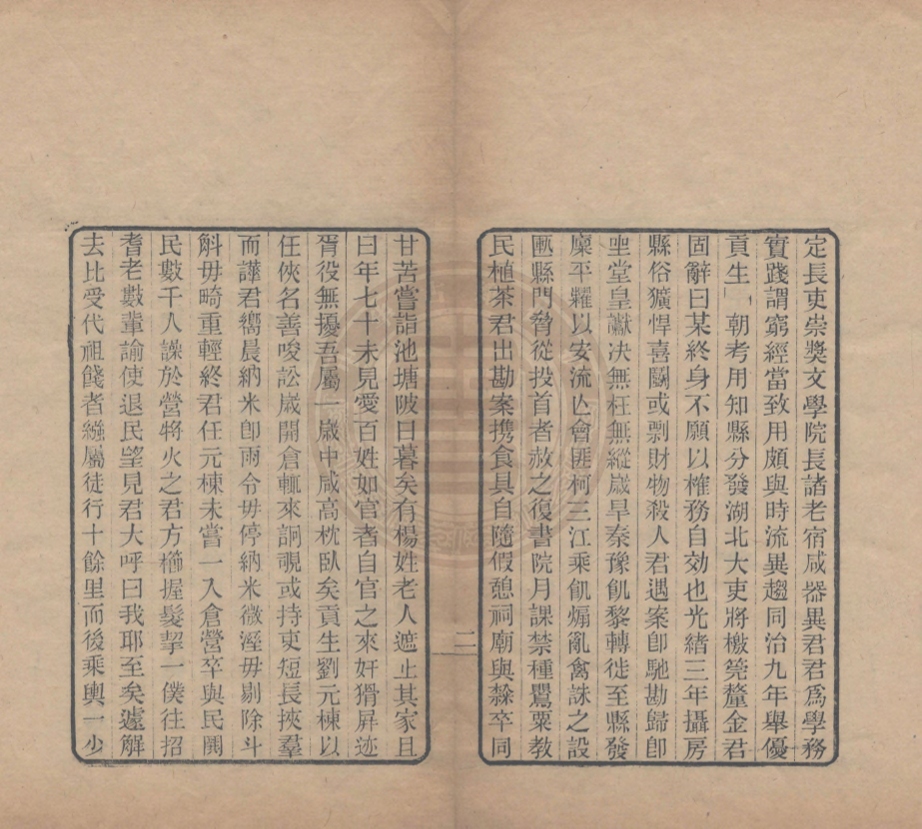 定長吏崇獎文學院長諸老宿咸器異君君爲學務
實踐謂窮經當致用頗與時流異趨同治九年舉優
貢生朝考用知縣分發湖北大吏將檄筦釐金君
固辭曰某終身不願以榷務自効也光緒三年攝房
縣俗獷悍喜鬬或剽財物殺人君遇案卽馳勘歸卽
坐堂皇讞決無枉無縱歲旱秦豫飢黎轉徙至縣發
廩平糶以安流亾會匪柯三江乘飢煽亂禽誅之設
匭縣門脅從投首者赦之復書院月課禁種罌粟教
民植茶君出勘案携食具自隨假憩祠廟與繇卒同
甘苦嘗詣池塘陂日暮矣有楊姓老人遮止其家且
曰年七十未見愛百姓如官者自官之來奸猾屏迹
胥役無擾吾屬一歲中咸高枕臥矣貢生劉元棟以
任俠名善唆訟歲開倉輒來詗覗或持吏短長挾羣
而讙君嚮晨納米卽雨令毋停納米微溼毋剔除斗
斛毋畸重輕終君任元棟未嘗一入倉營卒與民鬨
民數千人譟於營將火之君方櫛握髮挈一僕往招
耆老數輩諭使退民望見君大呼曰我耶至矣遽解
去比受代祖餞者繈屬徒行十餘里而後乘輿一少
二